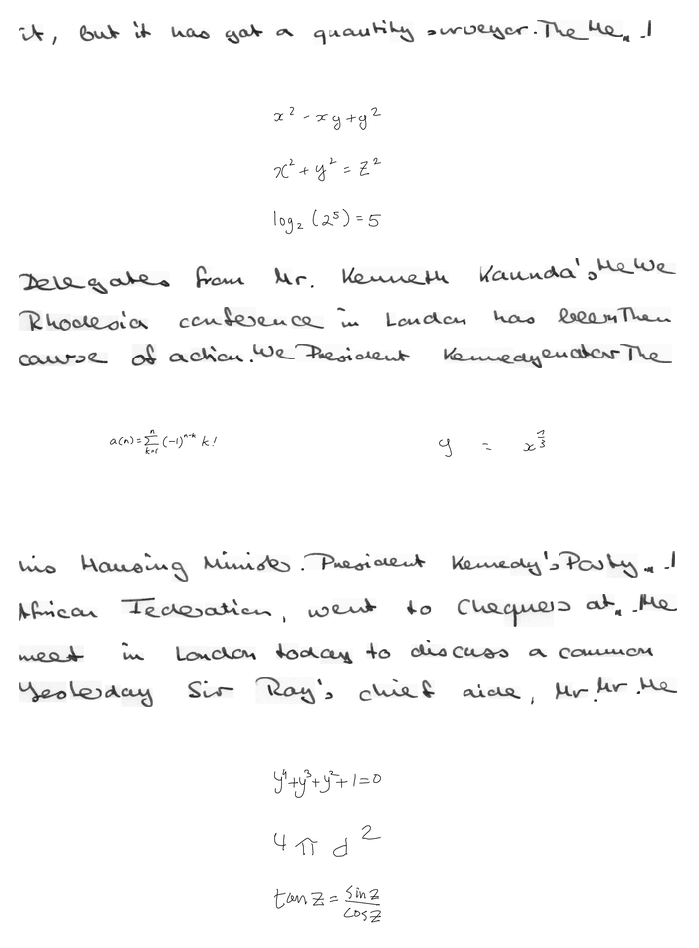 it, but it has got a quantity surveyor. The He
x² - xy + y²
x² + y² = z²
log₂ (2⁵) = 5
Delegates from Mr. Kenneth Kaunda's He We
Rhodesia conference in London has been Then
cause of action. We President Kennedy The
a(n) = ∑_{k=1}^{n} (-1)^{n-k} k!
y = x^{1/3}
his Housing Minist. President Kennedy's Party
African Federation, went to Chequers at He
meet in London today to discuss a common
Yesterday Sir Ray's chief aide, Mr. Mr. He
y⁴ + y³ + y² + 1 = 0
4 π d²
tan z = \frac{sin z}{cos z}